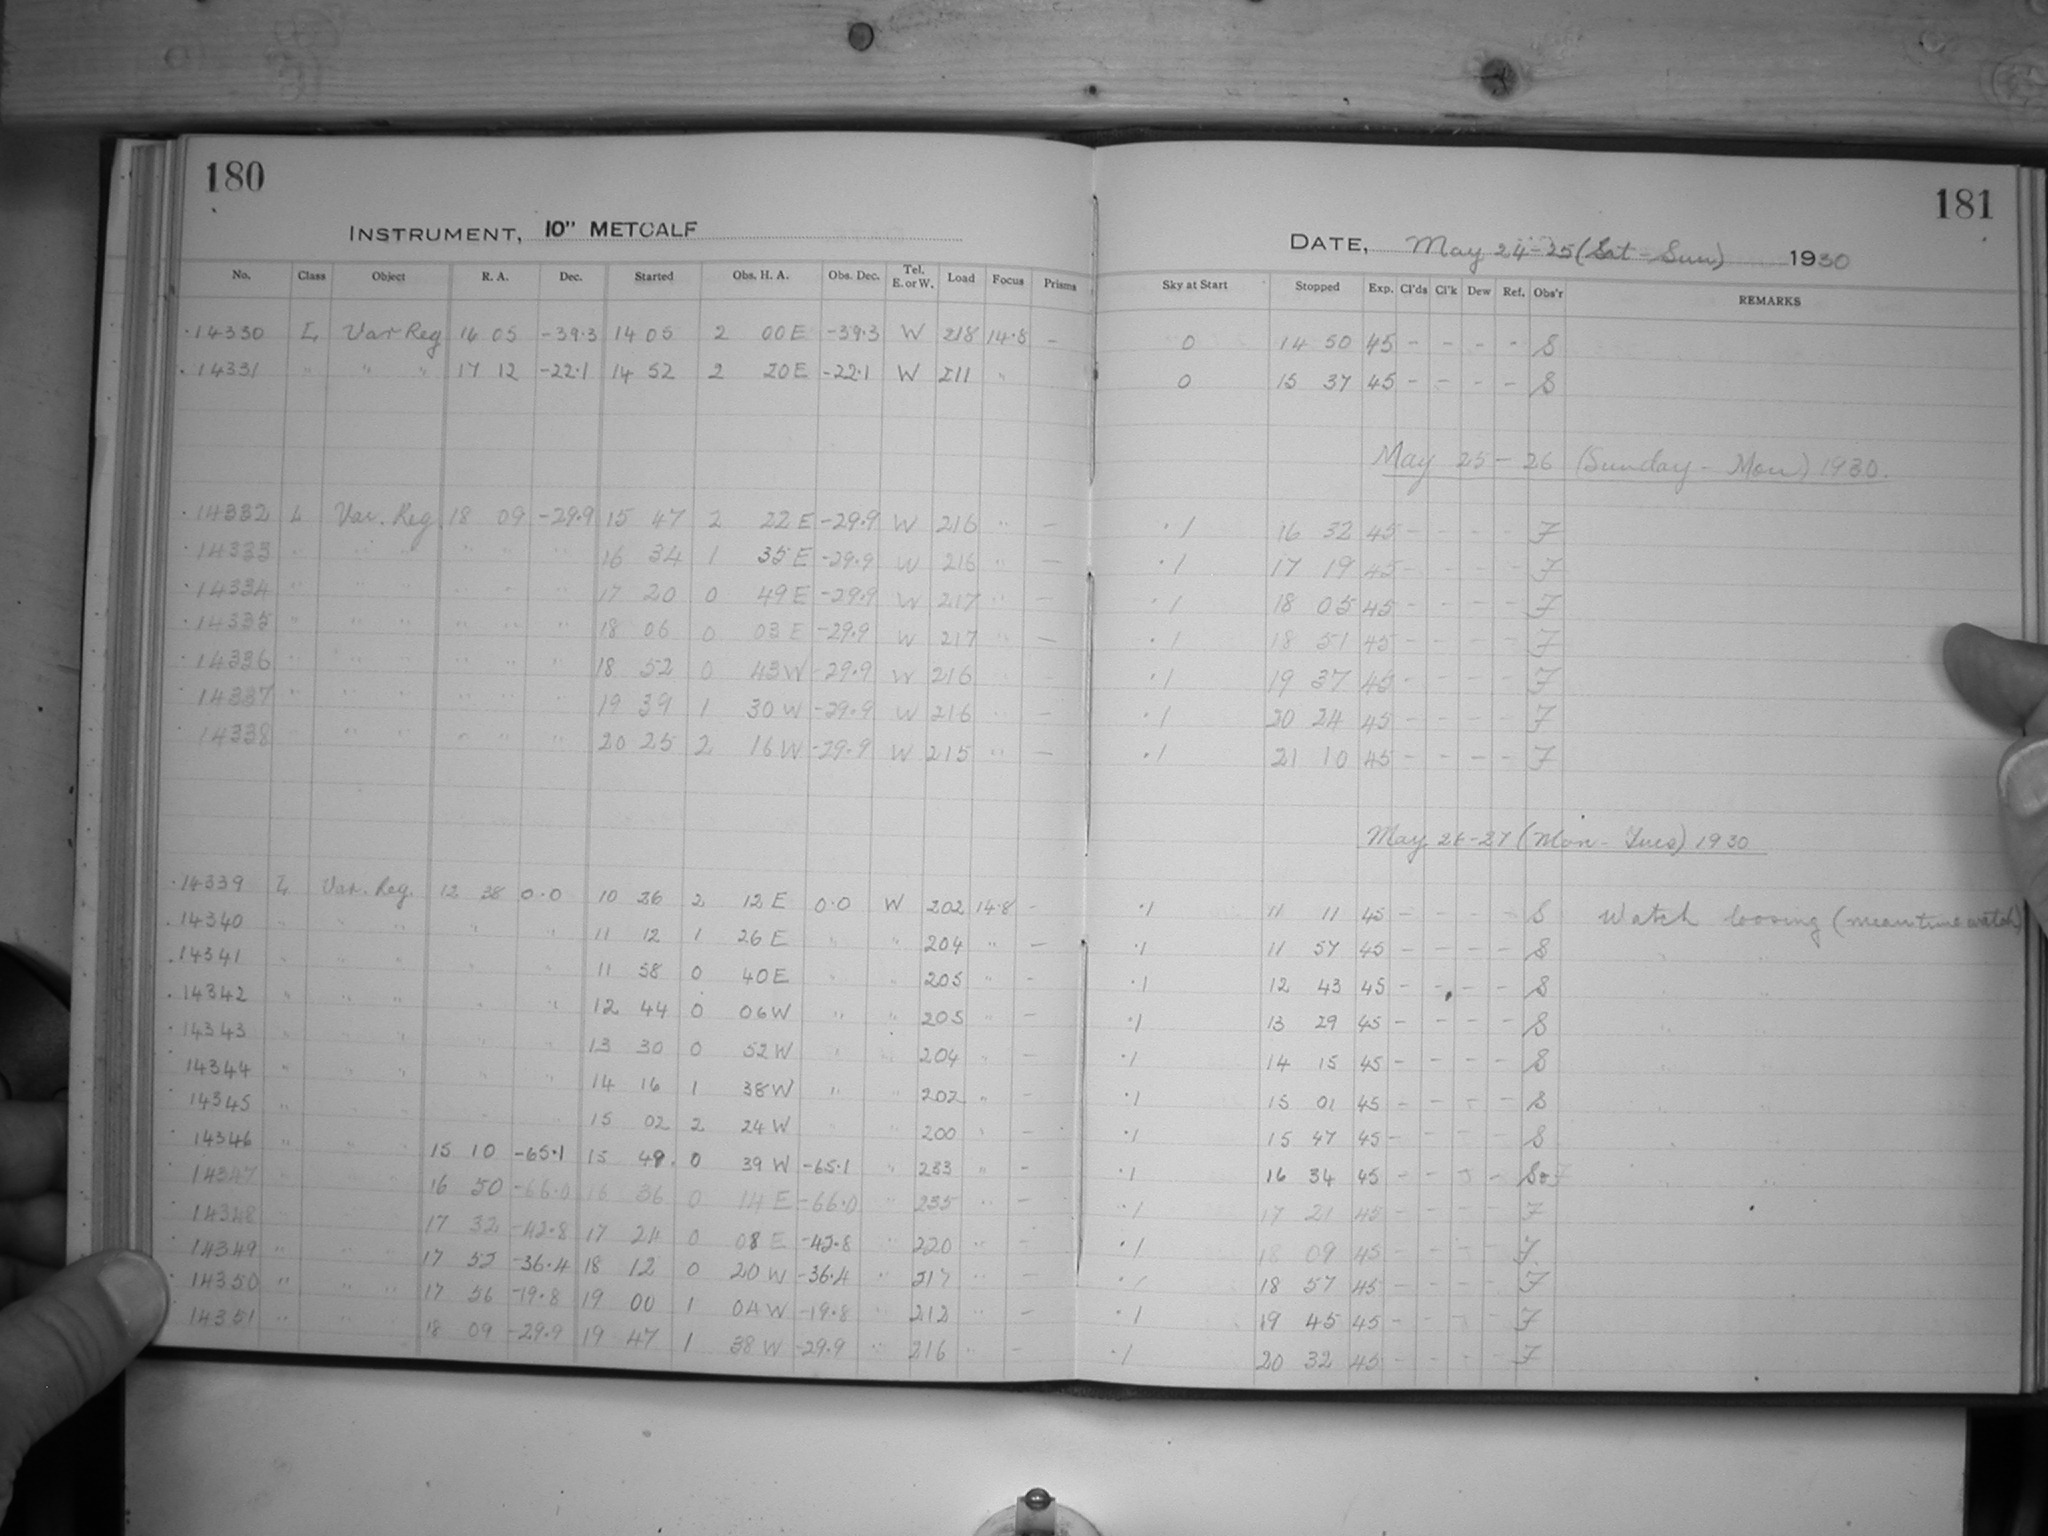 180
INSTRUMENT, 10" METCALF
No. Class Object R. A. Dec. Started Obs. H. A. Obs. Dec. Tel. E. or W. Load Focus Prisms
14330 L Var Reg 16 05 -39.3 14 05 2 00 E -39.3 W 218 14.8 -
14331 " " " 17 12 -22.1 14 52 2 20 E -22.1 W 211 "
14332 L Var. Reg 18 09 -29.9 15 47 2 22 E -29.9 W 216 " -
14333 " " " " " " 16 34 1 35 E -29.9 W 216 " -
14334 " " " " " " 17 20 0 49 E -29.9 W 217 " -
14335 " " " " " " 18 06 0 03 E -29.9 W 217 " -
14336 " " " " " " 18 52 0 43 W -29.9 W 216 " -
14337 " " " " " " 19 39 1 30 W -29.9 W 216 " -
14338 " " " " " " 20 25 2 16 W -29.9 W 215 " -
14339 L Var. Reg. 12 38 0.0 10 26 2 12 E 0.0 W 202 14.8 -
14340 " " " " 11 12 1 26 E " " 204 " -
14341 " " " " 11 58 0 40 E " " 205 " -
14342 " " " " " 12 44 0 06 W " " 205 " -
14343 " " " " " 13 30 0 52 W " " 204 " -
14344 " " " " " 14 16 1 38 W " " 202 " -
14345 " " " 15 02 2 24 W " " 200 " -
14346 " " " 15 10 -65.1 15 49 0 39 W -65.1 " 233 " -
14347 " " 16 50 -66.0 16 36 0 14 E -66.0 " 235 " -
14348 " " " 17 32 -42.8 17 24 0 08 E -42.8 " 220 " -
14349 " " " 17 52 -36.4 18 12 0 20 W -36.4 " 217 " -
14350 " " " 17 56 -19.8 19 00 1 04 W -19.8 " 212 " -
14351 " " " 18 09 -29.9 19 47 1 38 W -29.9 " 216 " -
181
DATE, May 24-25 (Sat - Sun) 1930
Sky at Start Stopped Exp. Cl'ds Cl'k Dew Ref. Obs'r REMARKS
0 14 50 45 - - - - S
0 15 37 45 - - - - S
May 25 - 26 (Sunday - Mon) 1930.
.1 16 32 45 - - - - F
.1 17 19 45 - - - - F
.1 18 05 45 - - - - F
.1 18 51 45 - - - - F
.1 19 37 45 - - - - F
.1 20 24 45 - - - - F
.1 21 10 45 - - - - F
May 26-27 (Mon - Tues) 1930
.1 11 11 45 - - - - S Watch loosing (meantime watch)
.1 11 57 45 - - - - S " "
.1 12 43 45 - - - - S " "
.1 13 29 45 - - - - S " "
.1 14 15 45 - - - - S
.1 15 01 45 - - - - S " "
.1 15 47 45 - - - - S " "
.1 16 34 45 - - - - S&F " "
.1 17 21 45 - - - - F
.1 18 09 45 - - - - F
.1 18 57 45 - - - - F
.1 19 45 45 - - - - F
.1 20 32 45 - - - - F